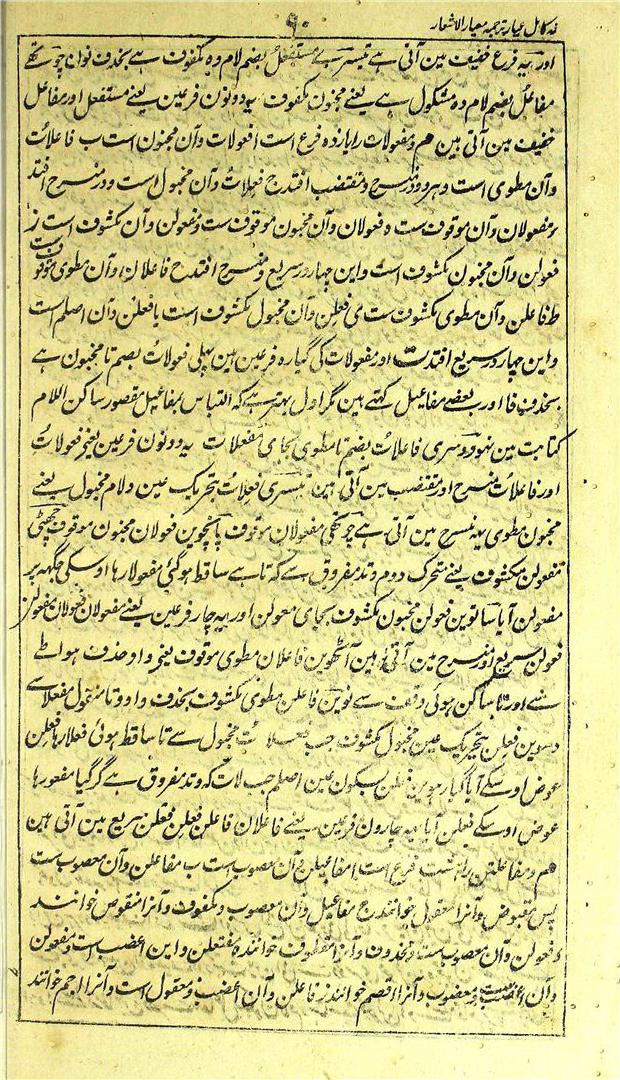 زر کامل عیار ترجمہ معیار الاشعار
۹۰
اور یہ فرع خفیف مین آتی ہے تیسرے مستفعل بضم لام وہ مکفوف ہے بحذف نون چوتھے
مفاعل بضم لام وہ مشکول ہے یعنے مخبون مکفوف یہ دونون فرعین یعنے مستفعل اور مفاعل
خفیف مین آتی ہین هم و مفعولات را یازده فرع است ا فعولات وآن مخبون است ب فاعلات
وآن مطوی است و هر دو در منسرح و مقتضب افتد ج فعلات وآن مخبول است و در منسرح افتد
د مفعولان وآن موقوف ست ه فعولان وآن مخبون موقوف ست و مفعولن وآن مکشوف است ز
فعولن وآن مخبون مکشوف است واین چهار در سریع و منسرح افتد ح فاعلان وآن مطوی موقوف ست
ط فاعلن وآن مطوی مکشوف ست ی فعلن وآن مخبول مکشوف است یا فعلن وآن اصلم است
واین چهار در سریع افتد ت اور مفعولات کی گیارہ فرعین ہین پہلی فعولات بضم تا مخبون ہے
بحذف فا اور بعضے مفاعیل کہتے ہین مگر اول بہتر ہے کہ التباس بمفاعیل مقصور ساکن اللام
کتابت مین نہو دوسری فاعلات بضم تا مطوی بجای مفعلات یہ دونون فرعین یعنے فعولات
اور فاعلات منسرح اور مقتضب مین آتی ہین تیسری فعلات بتحریک عین و لام مخبول یعنے
مخبون مطوی یہ منسرح مین آتی ہے چوتھی مفعولان موقوف پانچوین فعولان مخبون موقوف چھٹی
مفعولن مکشوف یعنے متحرک دوم وتد مفروق سے کہ تا ہے ساقط ہوگئی مفعولا رہا اوسکی جگہہ پر
مفعولن آیا ساتوین فعولن مخبون مکشوف بجای معولن اور یہ چار فرعین یعنے مفعولان فعولان مفعولن
فعولن سریع اور منسرح مین آتی ہین آٹھوین فاعلان مطوی موقوف یعنے واو حذف ہوا طے
سے اور تا ساکن ہوئی وقف سے نوین فاعلن مطوی مکشوف بحذف واو و تا منقول مفعلا سے
دسوین فعلن بتحریک عین مخبول مکشوف جب معلات مخبول سے تا ساقط ہوئی فعلا رہا فعلن
عوض اوسکے آیا گیارہوین فعلن بسکون عین اصلم جب لات کہ وتد مفروق ہے گر گیا مفعو رہا
عوض اوسکے فعلن آیا یہ چارون فرعین یعنے فاعلان فاعلن فعلن فعلن سریع مین آتی ہین
هم و مفاعلتن را هشت فرع است ا مفاعیلن وآن معصوب ست ب مفاعلن وآن معصوب ست
پس مقبوض وآنرا معقول خوانند ج مفاعیل وآن معصوب و مکفوف وآنرا منقوص خوانند
د فعولن وآن معصوب ست و محذوف وآنرا مقطوف خوانند ه مفتعلن واین اعضب است و مفعولن
وآن اعضب ست و معصوب وآنرا اقصم خوانند ز فاعلن وآن اعضب و معقول است وآنرا اجم خوانند